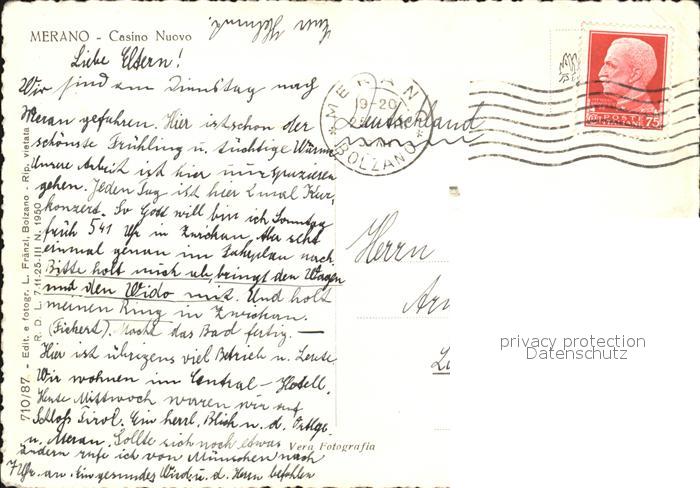 MERANO - Casino Nuovo
Liebe Eltern!
Wir sind am Dienstag nach
Meran gefahren. Hier ist schon der
schönste Frühling u. tüchtige Wärme
Unsere Arbeit ist hier nur spazieren
gehen. Jeden Tag ist hier 2mal Kur-
konzert. So Gott will bin ich Sonntag
früh 5 41 Uhr in Zwickau. Aber seht
einmal genau im Fahrplan nach
Bitte holt mich ab, bringt den Wagen
und den Wido mit. Und holt
meinen Ring in Zwickau.
(Fickert). Macht das Bad fertig. —
Hier ist übrigens viel Betrieb u. Leute.
Wir wohnen im Central - Hotell.
Heute Mittwoch waren wir auf
Schloß Tirol. Ein herrl. Blick u. d.
u. Meran. Sollte sich noch etwas
ändern rufe ich von München nach
7 Uhr. an. Ein gesundes u. d. Herrn befohlen
MERANO
19-20
BOLZANO
75
Deutschland
Herrn
710/87. - Edit. e fotogr. L. Fränzl, Bolzano - Rip. vietata
R. D. L. 7-11-25-III N. 1950
Vera Fotografia
privacy protection
Datenschutz